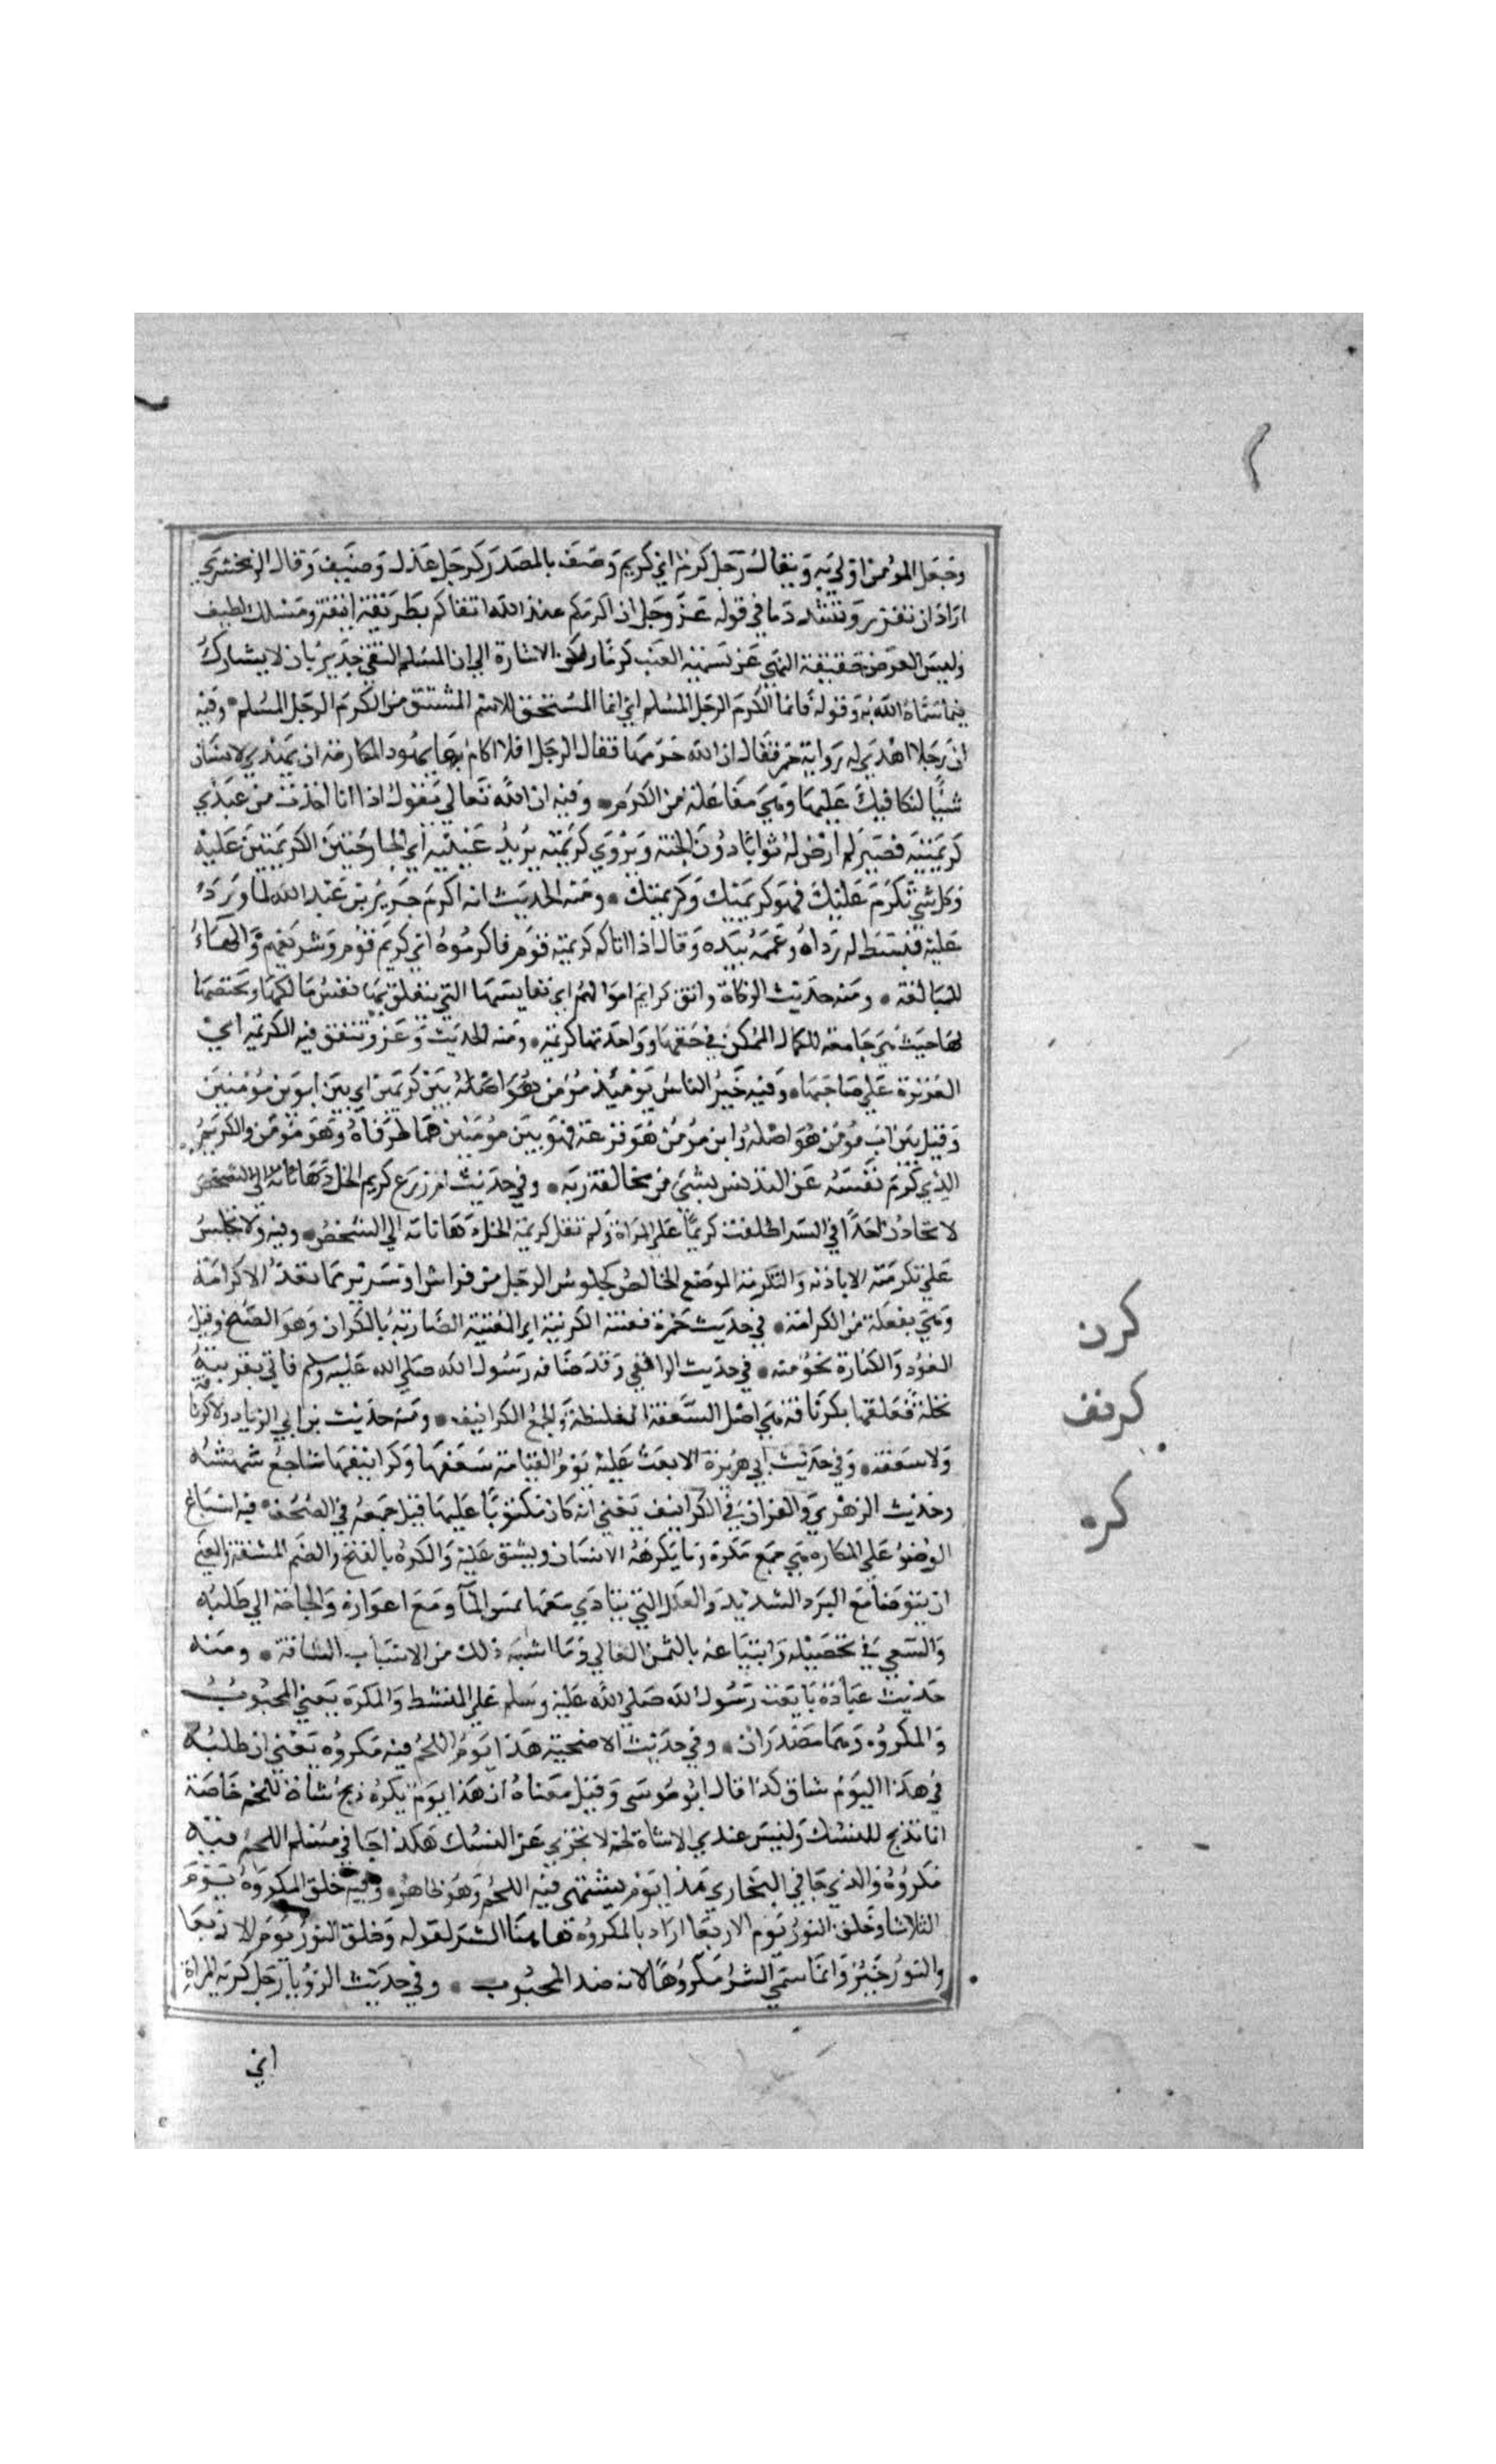 وجعل المؤمن اولي به ويقال رجل كرم اي كريم وصف بالمصدر كرجل عدل وضيف وقال الزمخشري
اراد ان يقرر ويشدد ما في قوله عز وجل ان اكرمكم عند الله اتقاكم بطريقة انيقة ومسلك لطيف
وليس الغرض حقيقة النهي عن تسمية العنب كرما ولكن الاشارة الي ان المسلم التقي جدير بان لا يشارك
فيما سماه الله به وقوله فانما الكرم الرجل المسلم اي انما المستحق للاسم المشتق من الكرم الرجل المسلم وفيه
ان رجلا اهدي له رواية خمر فقال ان الله حرمها فقال الرجل افلا اكارم بها يهود المكارمة ان يهدي لانسان
شيا لتكافيك عليها وهي مفاعلة من الكرم وفيه ان الله تعالي يقول اذا انا اخذت من عبدي
كريمتيه فصبر لم ارض له ثوابا دون الجنة ويروي كريمته يريد عينيه اي الجارحتين الكريمتين عليه
وكل شي تكرم عليك فهو كريمك وكريمتك ومنه الحديث انه اكرم جرير بن عبد الله لما ورد
عليه فبسط له رداه وعممه بيده وقال اذا اتاكم كريمة قوم فاكرموه اي كريم قوم وشريفهم والهاء
للمبالغة ومنه حديث الزكاة واتق كرايم اموالهم اي نفايسها التي يتعلق بها نفس مالكها ويختصها
لها حيث هي جامعة للكمال الممكن في حقها وواحدتها كريمة ومنه الحديث وغزو تنفق فيه الكريمة اي
العزيزة علي صاحبها وفيه خير الناس يوميذ مؤمن بين كريمين اي بين ابوين مؤمنين
وقيل بين اب مؤمن هو اصله وابن مؤمن هو فرعه فهو بين مؤمنين هما طرفاه وهو مؤمن والكريم
الذي كرم نفسه عن التدنس بشي من مخالفة ربه وفي حديث ام زرع كريم الخل
لا تخادن احدا في السر اطلقت كريما علي المراة ولم تقل كريمة الخل ذهابا به الي الشخص وفيه ولا يجلس
علي تكرمته الا باذنه والتكرمة الموضع الخاص لجلوس الرجل من فراش او سرير مما يعد لاكرامه
وهي تفعلة من الكرامة في حديث حمزة فغنته الكرينة اي المغنية الضاربة بالكران وهو الصنج وقيل
العود والكنارة نحو منه في حديث الواقفي وقد ضافه رسول الله صلي الله عليه وسلم فاتي بقربته
نخلة فعلقها بكرنافة هي اصل السعفة الغليظة والجمع الكرانيف ومنه حديث بن ابي الزناد ولا كرنافة
ولا سعفة وفي حديث ابي هريرة الا بعث عليه يوم القيامة سعفها وكرانيفها اشاجع تنهشه
وحديث الزهري والقران في الكرانيف يعني انه كان مكتوبا عليها قبل جمعه في الصحف فيه اسباغ
الوضو علي المكاره هي جمع مكره وما يكرهه الانسان ويشق عليه والكره بالفتح والضم المشقة والمعني
ان يتوضا مع البرد الشديد والعلل التي يتاذي معها بمس الما ومع اعوازه والحاجة الي طلبه
والسعي في تحصيله وابتياعه بالثمن الغالي وما اشبه ذلك من الاسباب الشاقة ومنه
حديث عبادة بايعت رسول الله صلي الله عليه وسلم علي المنشط والمكره يعني المحبوب
والمكروه وهما مصدران وفي حديث الاضحية هذا يوم اللحم فيه مكروه يعني ان طلبه
في هذا اليوم شاق كذا قال ابو موسي وقيل معناه ان هذا يوم يكره ذبح شاة للحم خاصة
انما تذبح للنسك وليس عندي الا شاة لحم لا تجزي عن النسك هكذا جا في مسلم اللحم فيه
مكروه والذي جا في البخاري هذا يوم يشتهي فيه اللحم وهو ظاهر وفيه خلق المكروه يوم
الثلاثا وخلق النور يوم الاربعا اراد بالمكروه هاهنا الشر لقوله وخلق النور يوم الاربعا
والنور خير وانما سمي الشر مكروها لانه ضد المحبوب وفي حديث الرؤيا رجل كريه المراة
اي
كرن
كرنف
كره